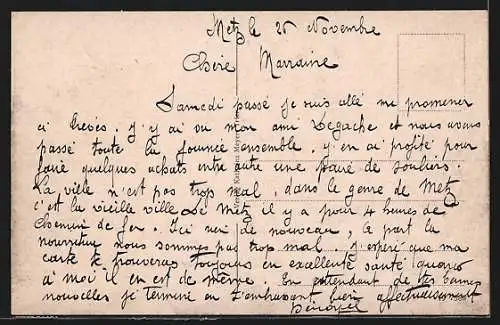 Metz le 26 Novembre
Chère Marraine
Samedi passé je suis allé me promener
à Trèves. j'y ai vu mon ami Degache et nous avons
passé toute la journée ensemble. y en ai profité pour
faire quelques achats entre autre une paire de souliers.
La ville n'est pas trop mal, dans le genre de Metz
c'est la vieille ville de Metz il y a pour 4 heures de
Chemin de fer. Ici rien de nouveau, à part la
nourriture nous sommes pas trop mal. J'espère que ma
carte te trouveras toujours en excellente santé quand
à moi il en est de même. En entendant de tes bonnes
nouvelles je termine en t'embrassant bien affectueusement